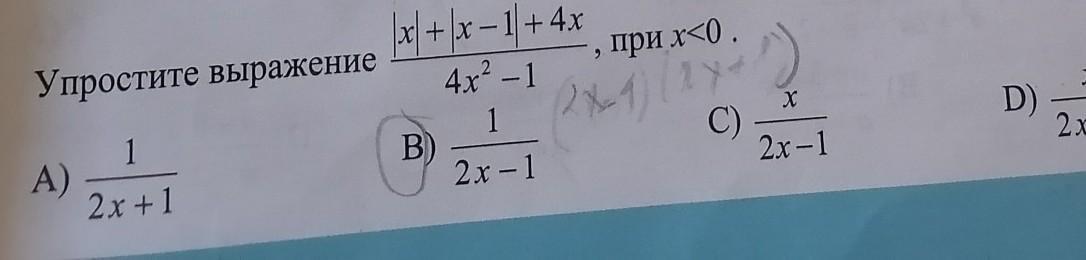 Упростите выражение (|x| + |x − 1| + 4x) / (4x² − 1), при x<0.
(2x-1)(2x+1)
A) 1 / (2x + 1) B) 1 / (2x − 1) C) x / (2x − 1) D)